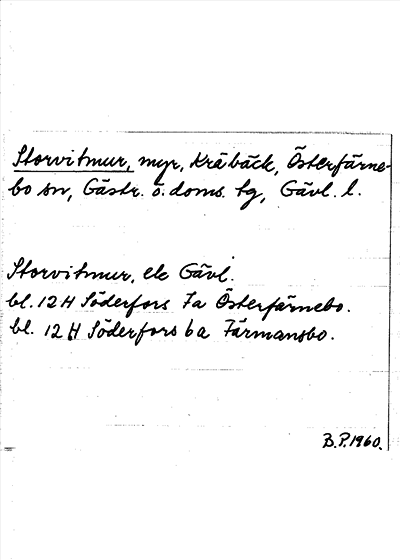 Storvitmur, myr, Kråbäck, Österfärne-
bo sn, Gästr. ö. doms. tg, Gävl. l.
Storvitmur, ek Gävl.
bl. 12 H Söderfors 7a Österfärnebo.
bl. 12 H Söderfors 6a Färmansbo.
B.P. 1960.